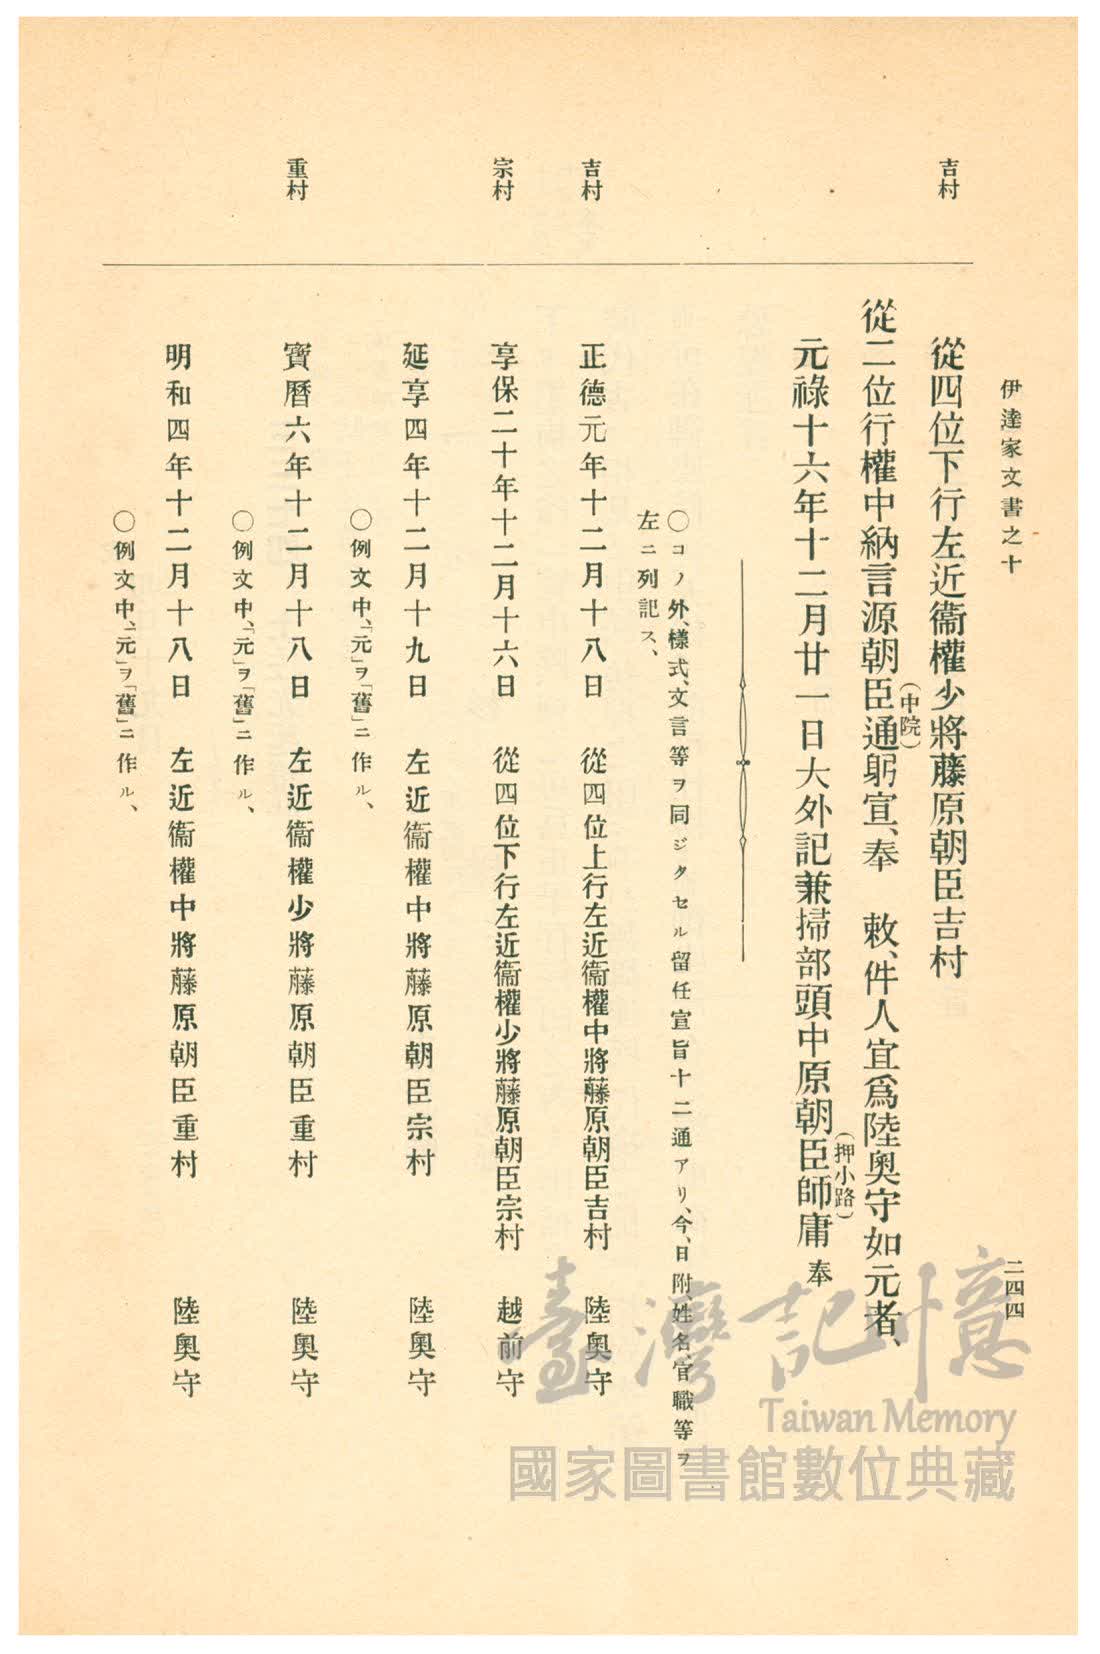 伊達家文書之十
二四四
吉村
從四位下行左近衞權少將藤原朝臣吉村
從二位行權中納言源朝臣通躬宣、奉　敕、件人宜爲陸奥守如元者、
（中院）
元祿十六年十二月廿一日大外記兼掃部頭中原朝臣師庸奉
（押小路）
〇コノ外、樣式、文言等ヲ同ジクセル留任宣旨十二通アリ、今、日附、姓名、官職等ヲ
左ニ列記ス、
吉村
正德元年十二月十八日　從四位上行左近衞權中將藤原朝臣吉村　陸奥守
宗村
享保二十年十二月十六日　從四位下行左近衞權少將藤原朝臣宗村　越前守
延享四年十二月十九日　左近衞權中將藤原朝臣宗村　陸奥守
〇例文中、「元」ヲ「舊」ニ作ル、
重村
寶曆六年十二月十八日　左近衞權少將藤原朝臣重村　陸奥守
〇例文中、「元」ヲ「舊」ニ作ル、
明和四年十二月十八日　左近衞權中將藤原朝臣重村　陸奥守
〇例文中、「元」ヲ「舊」ニ作ル、
臺灣記憶
Taiwan Memory
國家圖書館數位典藏